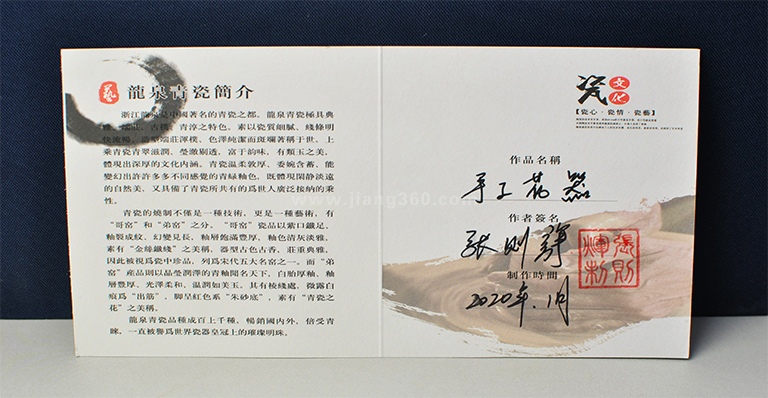 藝
龍泉青瓷簡介
浙江龍泉是中國著名的青瓷之都。龍泉青瓷極具典
雅、端莊、古樸、青淳之特色。素以瓷質細膩、綫條明
快流暢、造型端莊渾樸、色澤純潔而斑斕著稱于世。上
乘瓷青瓷青翠滋潤、瑩澈剔透、富于韵味，有類玉之美、
體現出深厚的文化内涵。青瓷温柔敦厚、委婉含蓄、能
變幻出許許多多不同感覺的青緑釉色，既體現閑静淡遠
的自然美，又具備了青瓷所共有的爲世人廣泛接納的秉
性。
青瓷的燒制不僅是一種技術，更是一種藝術，有
“哥窑”和“弟窑”之分。“哥窑”瓷品以紫口鐵足、
釉裂成紋、幻變見長，釉層飽滿豐厚、釉色清灰淡雅，
素有“金絲鐵綫”之美稱，器型古色古香、莊重典雅，
因此被視爲瓷中珍品，列爲宋代五大名窑之一。而“弟
窑”産品則以晶瑩潤澤的青釉聞名天下，白胎厚釉、釉
層豐厚、光澤柔和、温潤如美玉。具有棱綫處，微露白
痕爲“出筋”，脚呈紅色系“朱砂底”，素有“青瓷之
花”之美稱。
龍泉青瓷品種成百上千種，暢銷國内外，倍受青
睞，一直被譽爲世界瓷器皇冠上的璀璨明珠。
www.jiang360.com
瓷
文化
【瓷心·瓷情·瓷藝】
作品名稱
手工花器
作者簽名
張則輝
張則
輝制
制作時間
2020年.1月